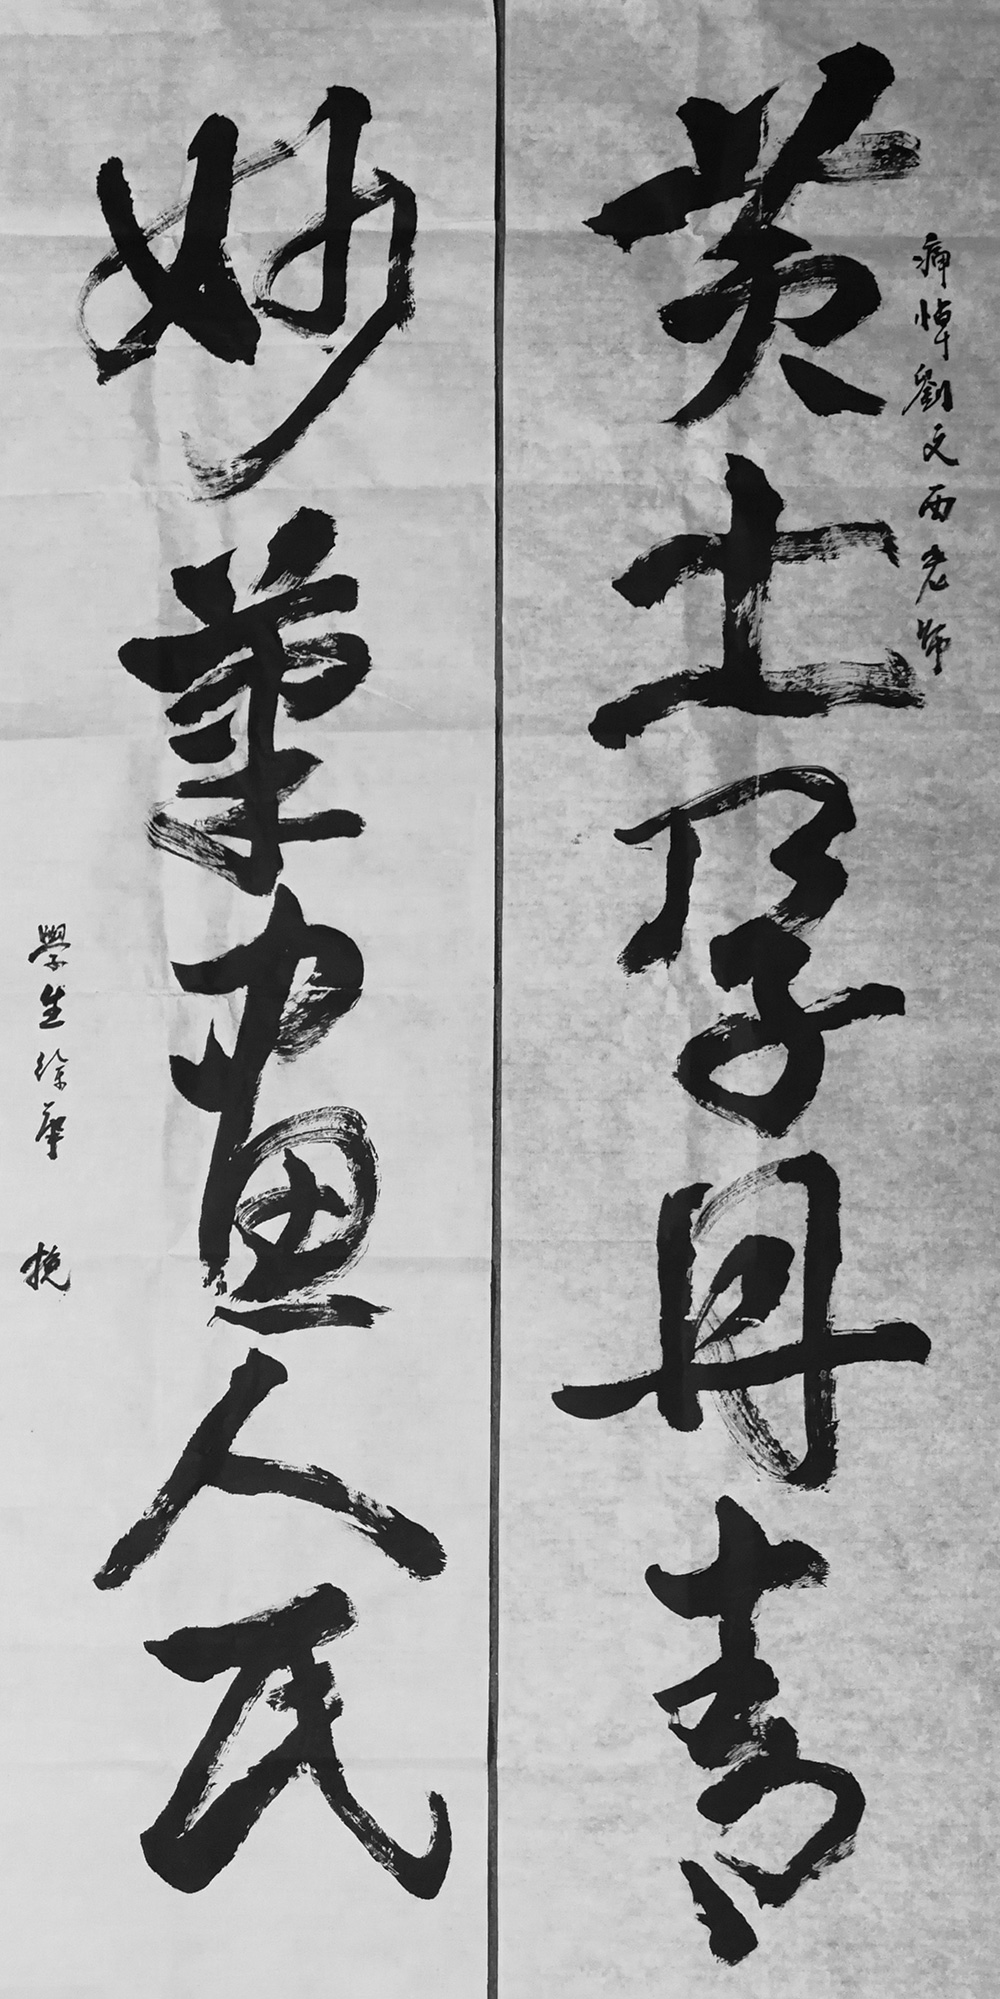 痛悼劉文西老师
黄土孕丹青
妙筆畫人民
學生徐華 挽